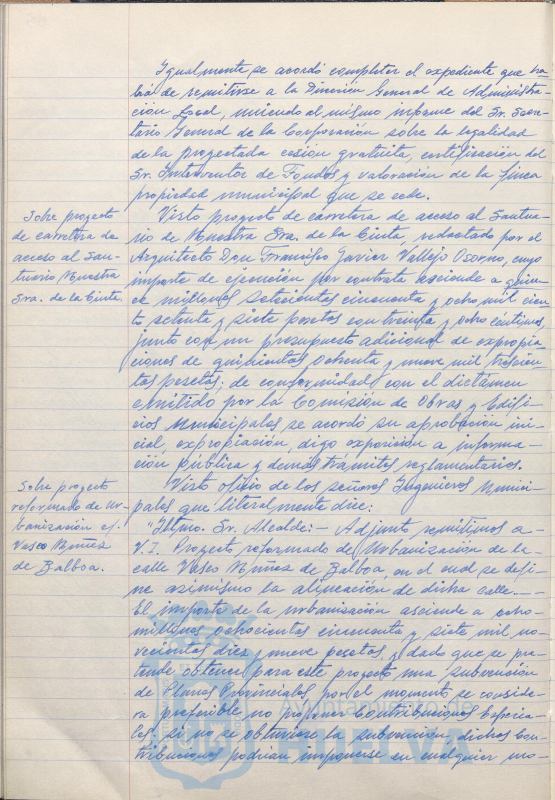 Igualmente, se acordó completar el expediente que ha-
brá de remitirse a la Dirección General de Administra-
ción Local, uniendo al mismo informe del Sr. Secre-
tario General de la Corporación sobre la legalidad
de la proyectada cesión gratuita, certificación del
Sr. Interventor de Fondos y valoración de la finca
propiedad municipal que se cede.
Sobre proyecto
de carretera de
acceso al San-
tuario Nuestra
Sra. de la Cinta.
Visto proyecto de carretera de acceso al Santua-
rio de Nuestra Sra. de la Cinta, redactado por el
Arquitecto Don Francisco Javier Vallejo Osorno, cuyo
importe de ejecución por contrata asciende a quin-
ce millones setecientas cincuenta y ocho mil cien-
to setenta y siete pesetas con treinta y ocho céntimos,
junto con un presupuesto adicional de expropia-
ciones de quinientas ochenta y nueve mil trescien-
tas pesetas; de conformidad con el dictamen
emitido por la Comisión de Obras y Edifi-
cios Municipales se acordó su aprobación ini-
cial, expropiación, digo exposición a informa-
ción pública y demás trámites reglamentarios.
Sobre proyecto
reformado de ur-
banización c/.
Vasco Núñez
de Balboa.
Visto oficio de los señores Ingenieros Munici-
pales que literalmente dice:
"Iltmo. Sr. Alcalde: - Adjunto remitimos a-
V.I. Proyecto reformado de Urbanización de la-
calle Vasco Núñez de Balboa, en el cual se defi-
ne asimismo la alineación de dicha calle.--
El importe de la urbanización asciende a ocho-
millones ochocientas cincuenta y siete mil no-
vecientas diez y nueve pesetas, y dado que se pre-
tende obtener para este proyecto una subvención
de Planes Provinciales, por el momento se conside-
ra preferible no proponer Contribuciones Especia-
les, si no se obtuviese la subvención, dichas Con-
tribuciones podrían imponerse en cualquier mo-
Ayuntamiento de
HUELVA